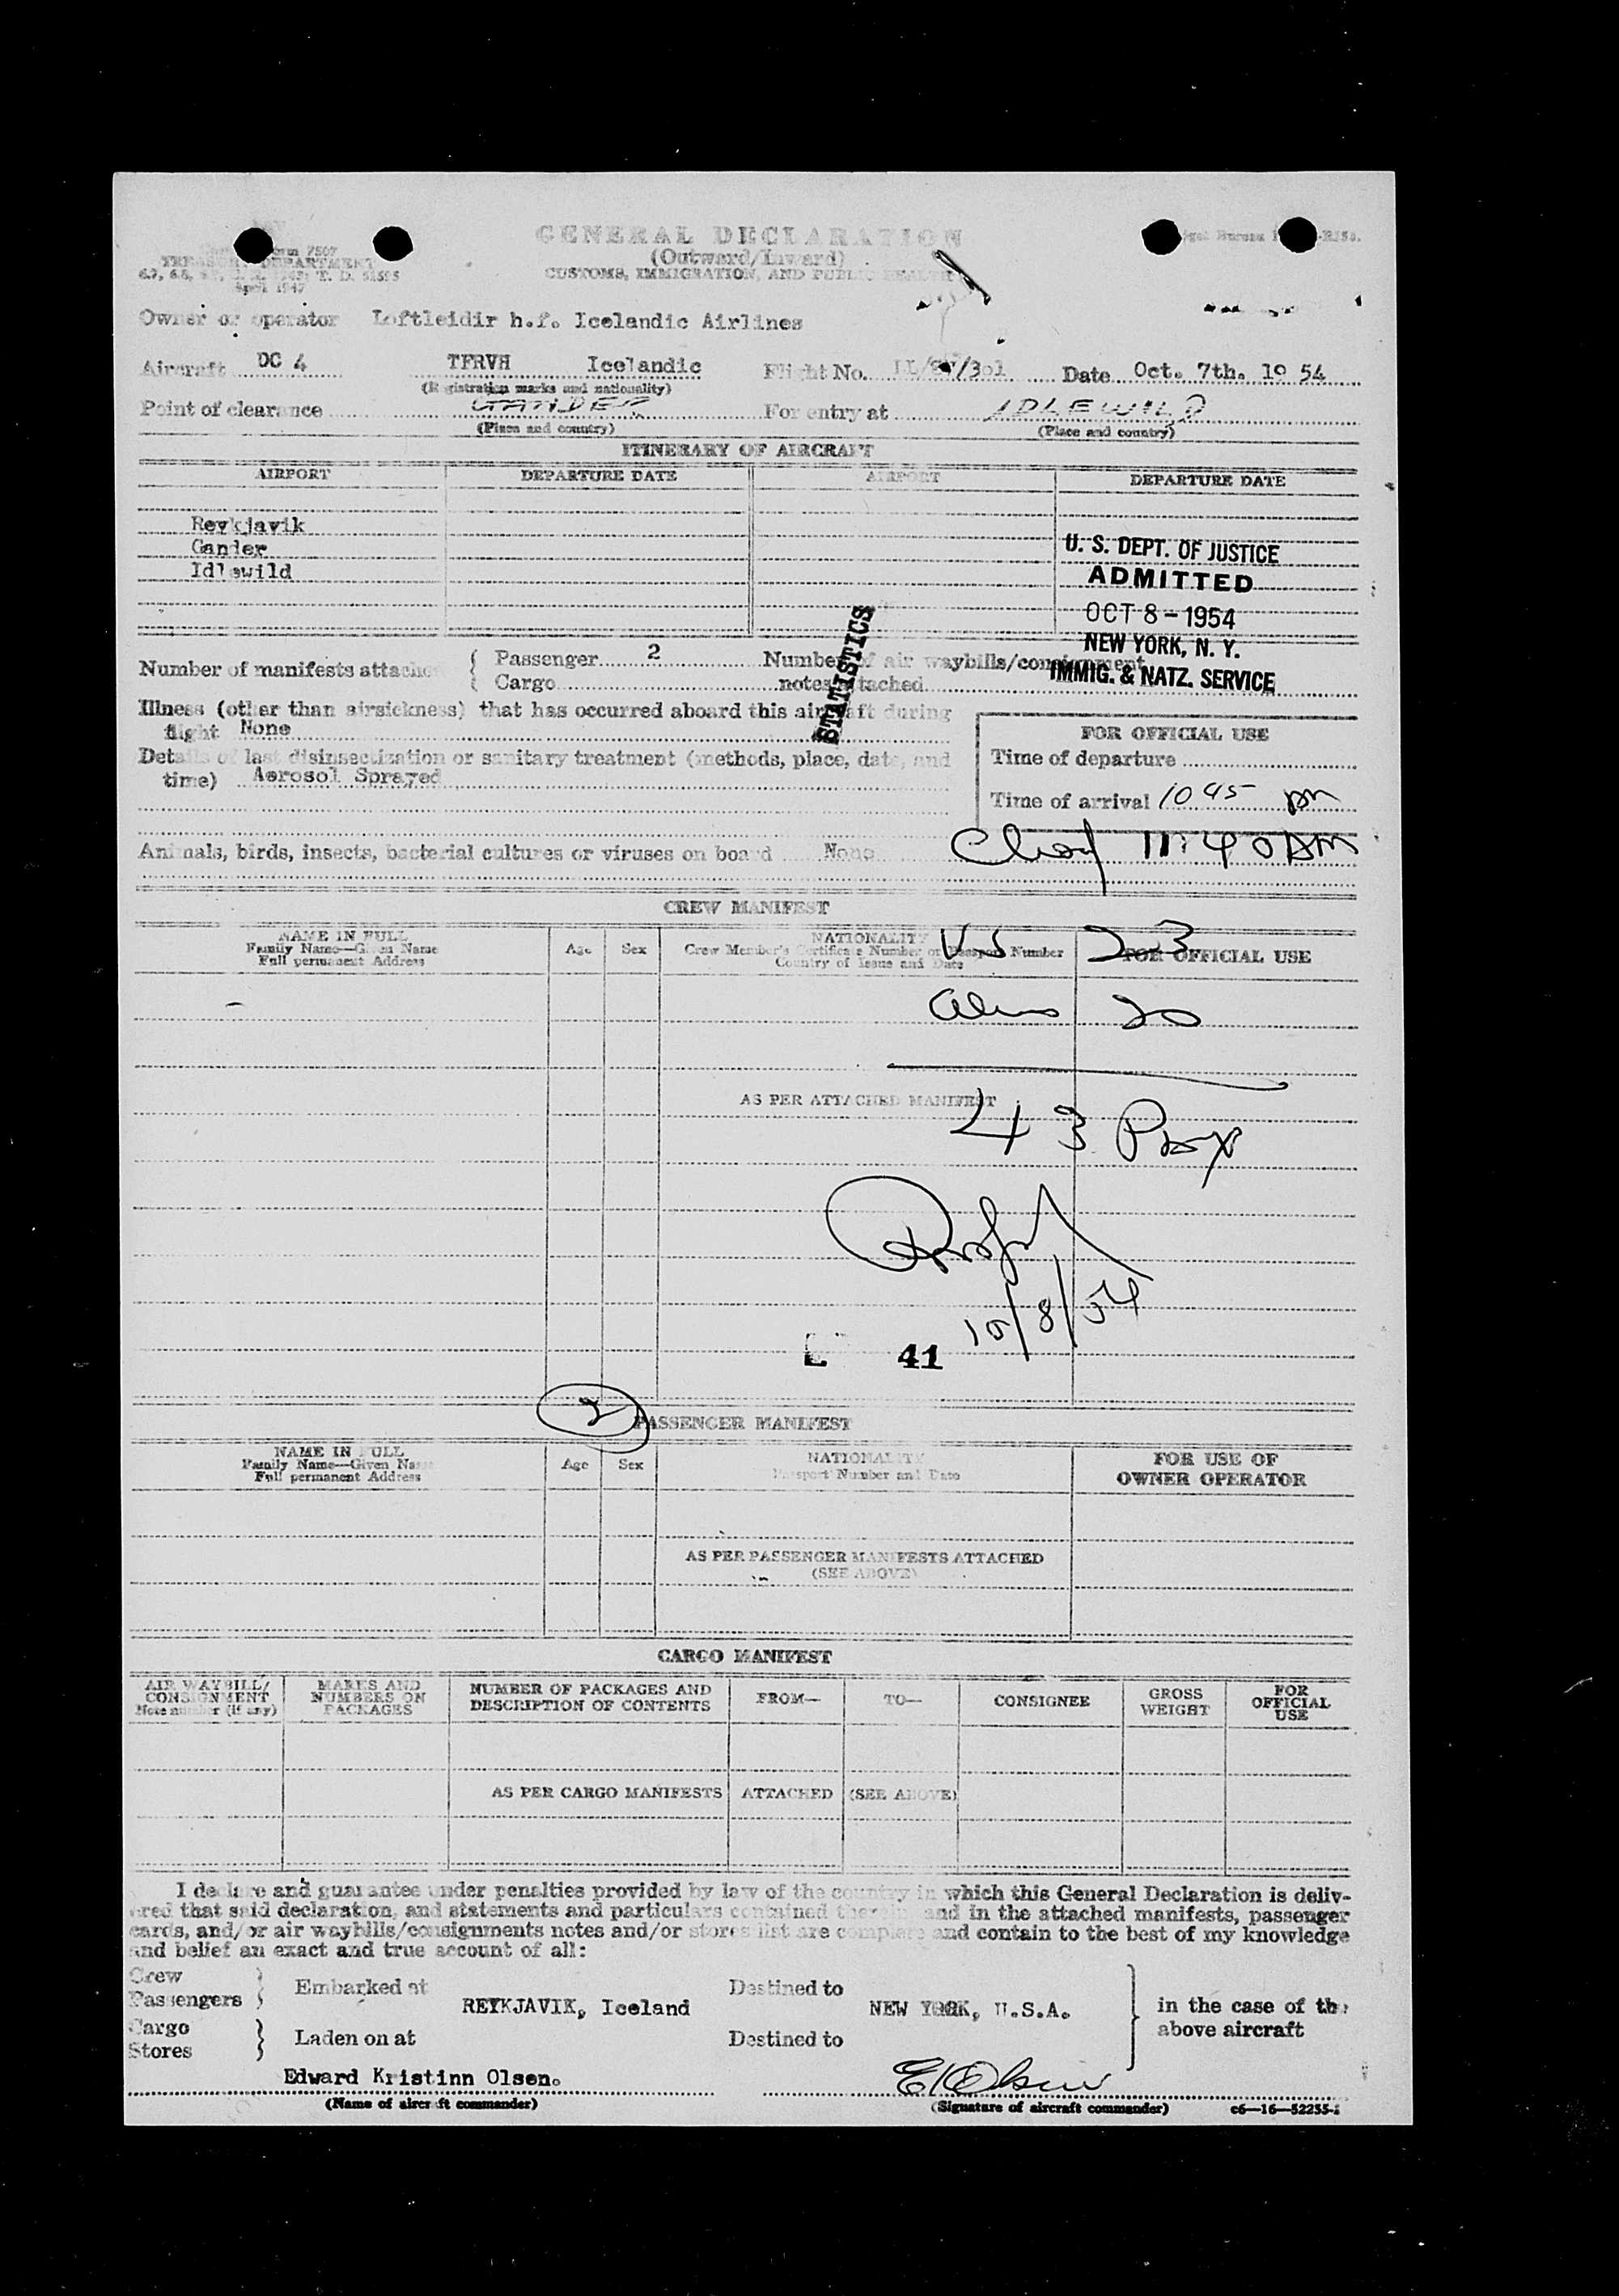 GENERAL DECLARATION
(Outward/Inward)
CUSTOMS, IMMIGRATION, AND PUBLIC HEALTH
TREASURY DEPARTMENT
April 1947
Owner or operator Loftleidir h.f. Icelandic Airlines
Aircraft DC 4 TFRVH Icelandic Flight No. Date Oct. 7th. 19 54
(Registration marks and nationality)
Point of clearance GANDER For entry at IDLEWILD
(Place and country) (Place and country)
ITINERARY OF AIRCRAFT
AIRPORT DEPARTURE DATE AIRPORT DEPARTURE DATE
Reykjavik
Gander
Idlewild
U. S. DEPT. OF JUSTICE
ADMITTED
OCT 8 - 1954
NEW YORK, N. Y.
IMMIG. & NATZ. SERVICE
STATISTICS
Number of manifests attached { Passenger 2 Number of air waybills/consignment
Cargo notes attached
Illness (other than airsickness) that has occurred aboard this aircraft during
flight None
Details of last disinsectization or sanitary treatment (methods, place, date, and
time) Aerosol Sprayed
FOR OFFICIAL USE
Time of departure
Time of arrival 10 45 pm
11:40 AM
Animals, birds, insects, bacterial cultures or viruses on board None
CREW MANIFEST
NAME IN FULL
Family Name—Given Name
Full permanent Address
Age Sex
NATIONALITY
Crew Member's Certificate Number or Passport Number
Country of Issue and Date
FOR OFFICIAL USE
US 23
20
AS PER ATTACHED MANIFEST
43 Pax
10/8/54
41
2
PASSENGER MANIFEST
NAME IN FULL
Family Name—Given Name
Full permanent Address
Age Sex
NATIONALITY
Passport Number and Date
FOR USE OF
OWNER OPERATOR
AS PER PASSENGER MANIFESTS ATTACHED
(SEE ABOVE)
CARGO MANIFEST
AIR WAYBILL/
CONSIGNMENT
Note number (if any)
MARKS AND
NUMBERS ON
PACKAGES
NUMBER OF PACKAGES AND
DESCRIPTION OF CONTENTS
FROM—
TO—
CONSIGNEE
GROSS
WEIGHT
FOR
OFFICIAL
USE
AS PER CARGO MANIFESTS ATTACHED (SEE ABOVE)
I declare and guarantee under penalties provided by law of the country in which this General Declaration is deliv-
ered that said declaration, and statements and particulars contained therein and in the attached manifests, passenger
cards, and/or air waybills/consignments notes and/or stores list are complete and contain to the best of my knowledge
and belief an exact and true account of all:
Crew
Passengers } Embarked at REYKJAVIK, Iceland Destined to NEW YORK, U.S.A. } in the case of the
above aircraft
Cargo
Stores } Laden on at Destined to
Edward Kristinn Olsen. E K Olsen
(Name of aircraft commander) (Signature of aircraft commander) c6—16—52255-1